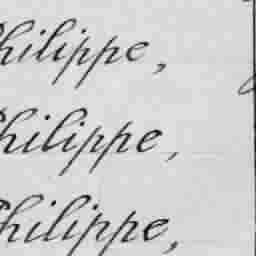 Philippe,
Philippe,
Philippe,